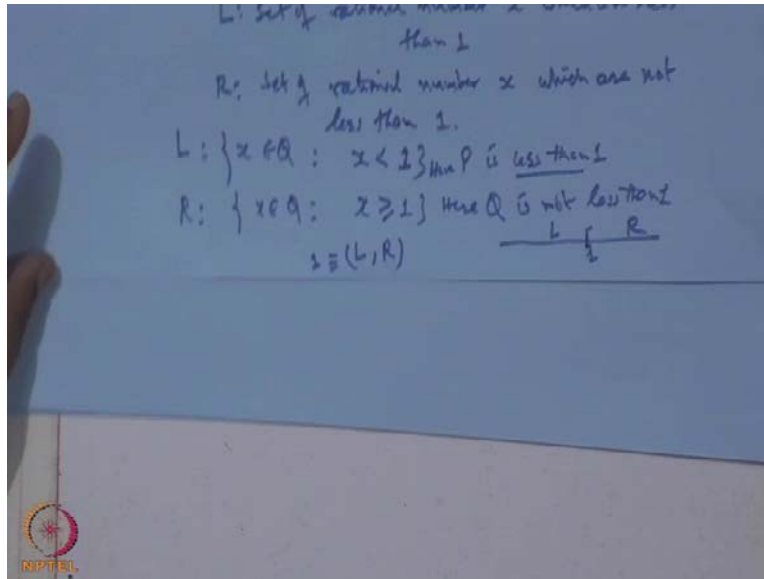 L: Set of rational number x which are less
than 1
R: Set of rational number x which are not
less than 1.
L: {x ∈ Q : x < 1} Here P is less than 1
R: {x ∈ Q : x ≥ 1} Here Q is not less than 1
L R
1
1 ≡ (L, R)
NPTEL